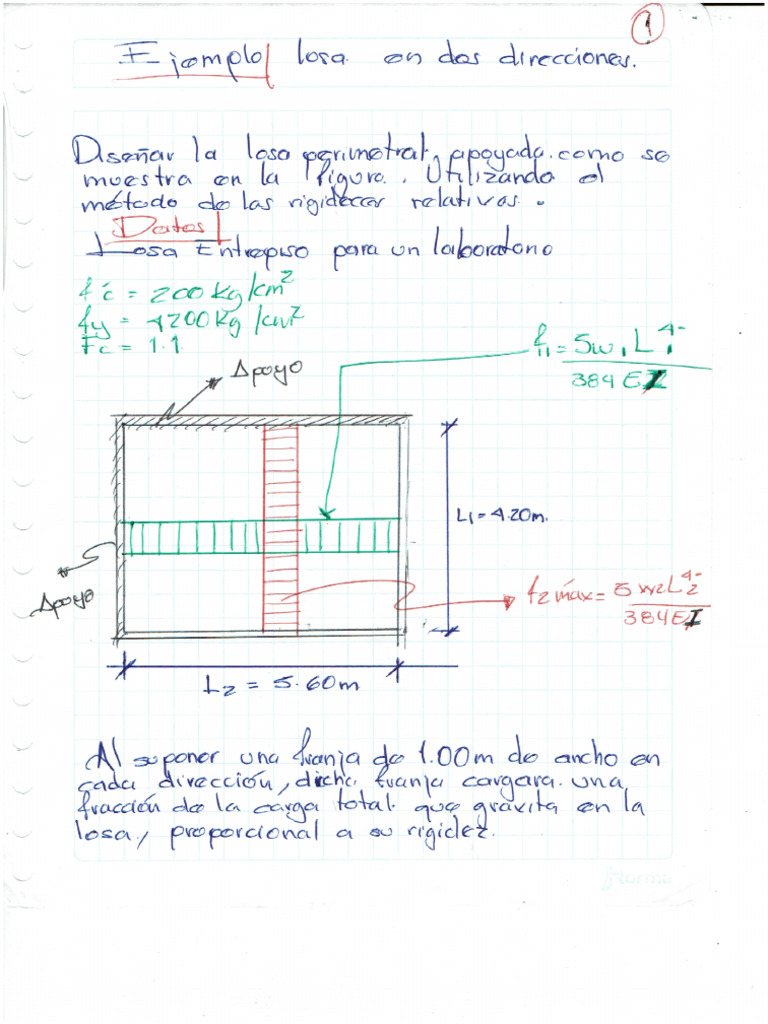 1
Ejemplo losa en dos direcciones.
Diseñar la losa perimetral, apoyada como se
muestra en la figura. Utilizando el
método de las rigideces relativas.
Datos
Losa Entrepiso para un laboratorio
f'c = 200 Kg/cm²
fy = 4200 Kg/cm²
Fc = 1.1
f₁₁ = 5w₁L₁⁴ / 384EI
Apoyo
L₁ = 4.20m.
Apoyo
f₂ máx = 5w₂L₂⁴ / 384EI
L₂ = 5.60m
Al suponer una franja de 1.00m de ancho en
cada dirección, dicha franja cargara una
fracción de la carga total que gravita en la
losa, proporcional a su rigidez.
norma